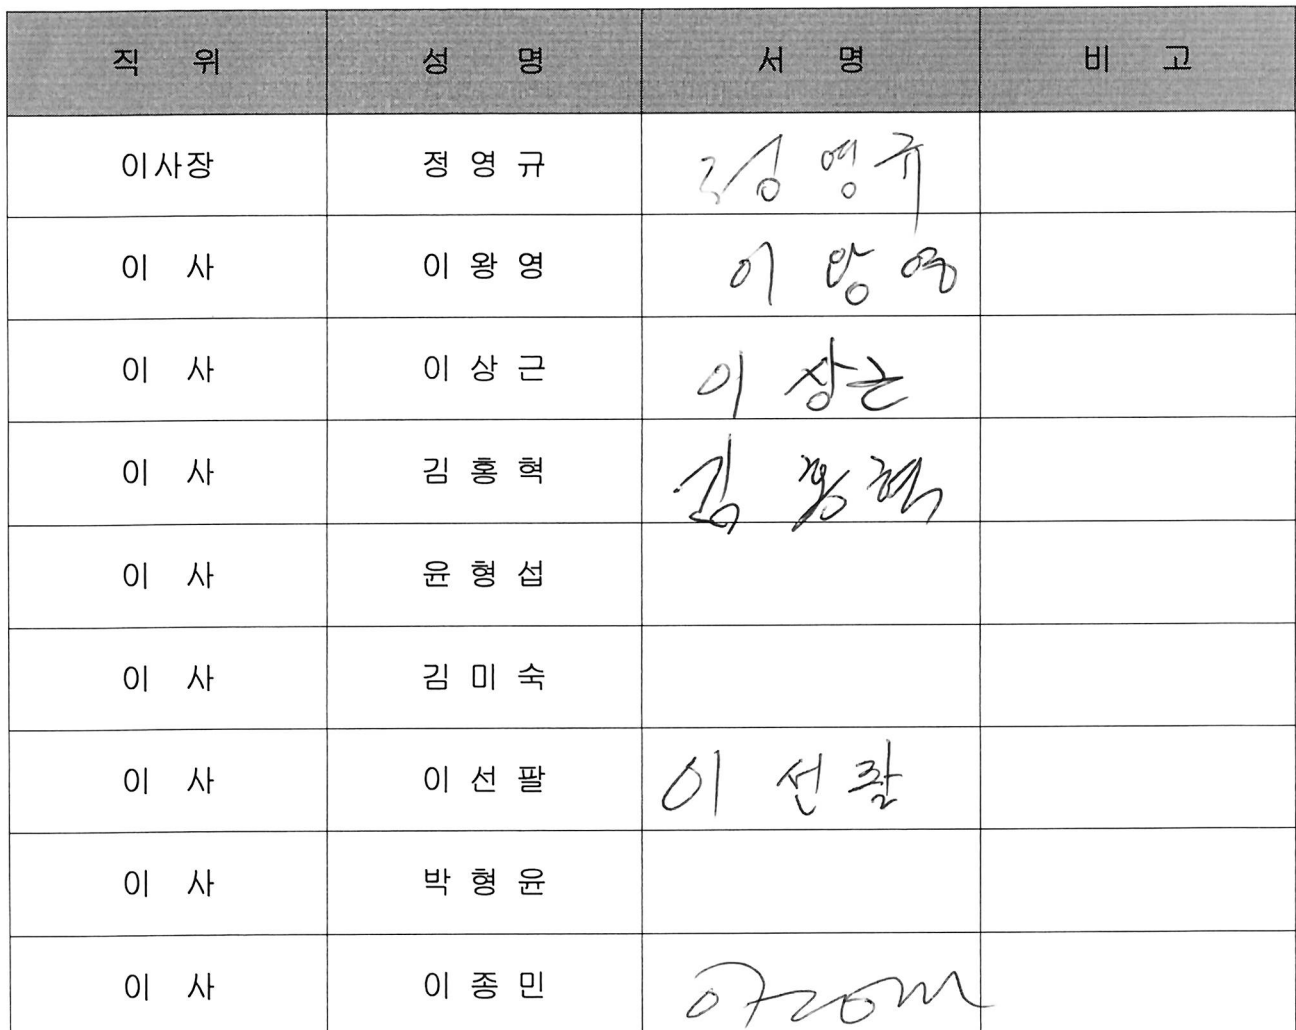 직 위 성 명 서 명 비 고
이사장 정 영 규 정 영 규
이 사 이 왕 영 이 왕 영
이 사 이 상 근 이 상근
이 사 김 홍 혁 김 홍 혁
이 사 윤 형 섭
이 사 김 미 숙
이 사 이 선 팔 이 선 팔
이 사 박 형 윤
이 사 이 종 민